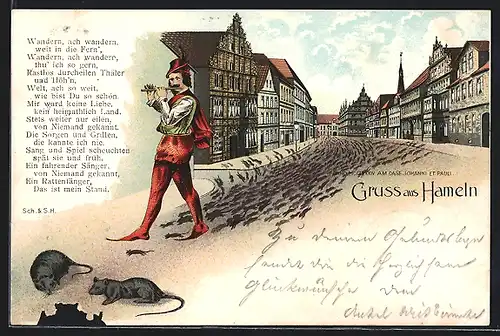 Wandern, ach wandern,
weit in die Fern',
Wandern, ach wandern,
thu' ich so gern,
Rastlos durcheilen Thäler
und Höh'n.
Welt, ach so weit,
wie bist Du so schön.
Mir ward keine Liebe,
kein heimathlich Land.
Stets weiter nur eilen,
von Niemand gekannt.
Die Sorgen und Grillen,
die kannte ich nie.
Sang und Spiel scheuchten
spät sie und früh.
Ein fahrender Sänger,
von Niemand gekannt,
Ein Rattenfänger,
Das ist mein Stand.
Sch. & S.H.
AM DAGE JOHANNI ET PAULI
Gruss aus Hameln
Zu deinem Geburtstage
sendet dir die herzlichsten
Glückwünsche dein
Onkel